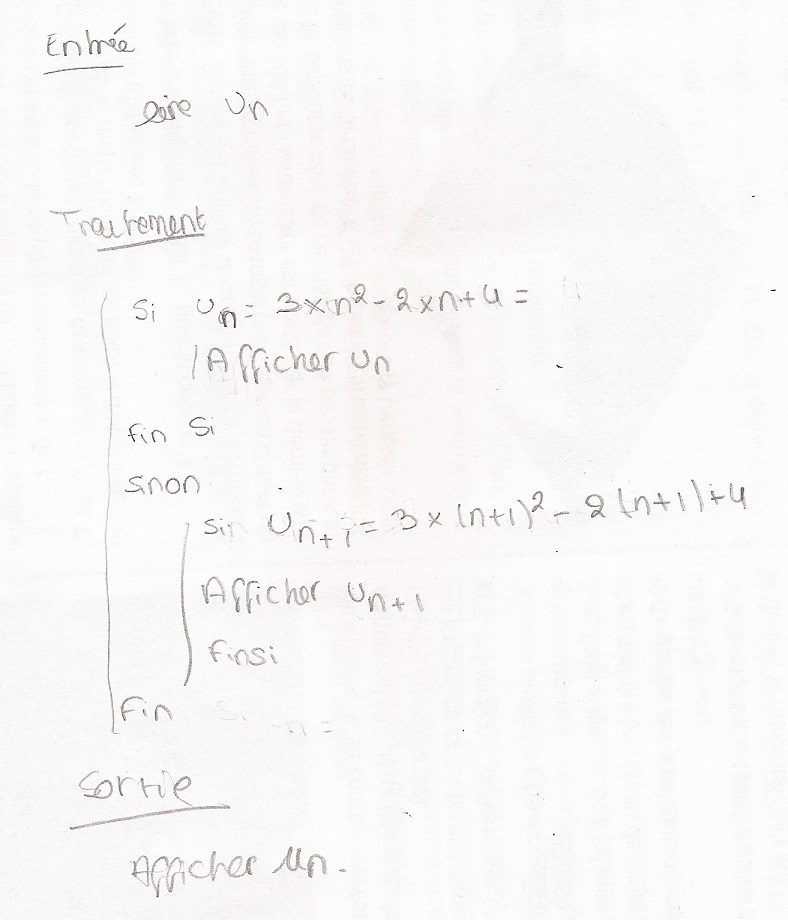 Entrée
lire Un
Traitement
Si Un = 3×n²-2×n+4 =
Afficher Un
fin Si
sinon
si Un+1 = 3×(n+1)²-2(n+1)+4
Afficher Un+1
finsi
Fin
Sortie
Afficher Un.